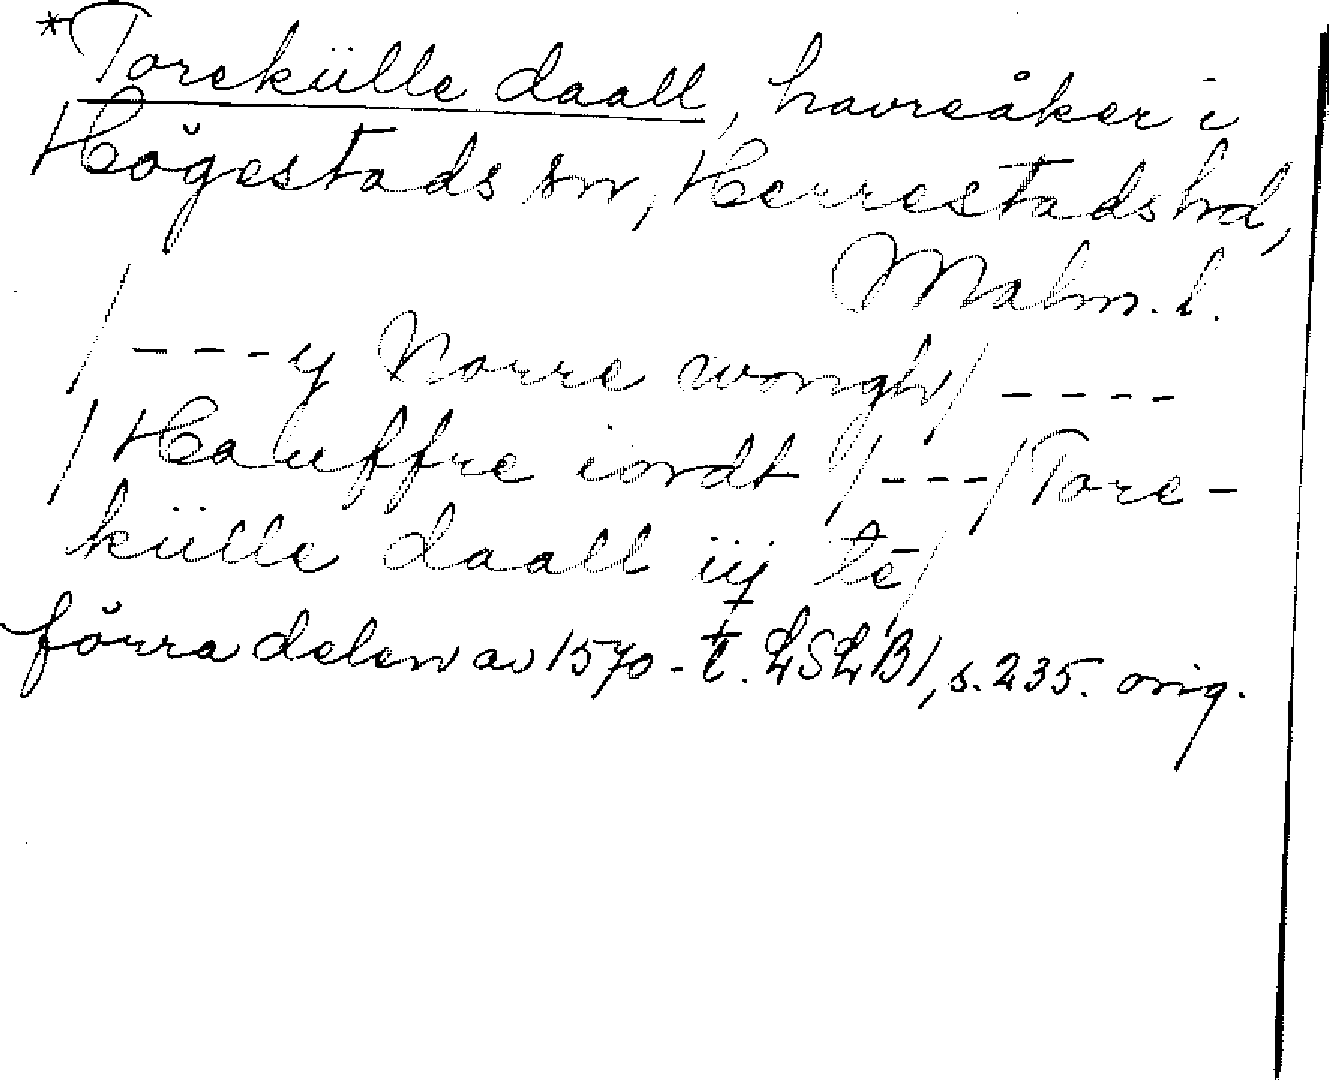 *Torekülle daall, havreåker i
Högestads sn, Herrestads hd,
Malm. l.
/---y Norre wongh/----
/Hauffre iordt/---/Tore-
külle daall iij te/
förra delen av 1570-t. LSLB1, s. 235. orig.